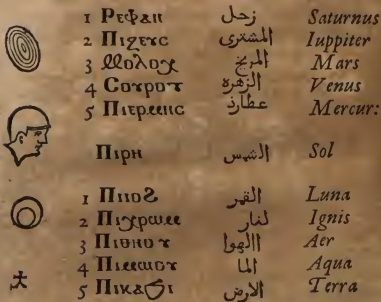 1 Ⲣⲉⲫⲁⲛ زحل Saturnus
2 Ⲡⲓⲍⲉⲩⲥ المشترى Iuppiter
3 Ⲙⲟⲗⲟⲭ المريخ Mars
4 Ⲥⲟⲩⲣⲟⲧ الزهره Venus
5 Ⲡⲓⲉⲣⲙⲏⲥ عطارد Mercur:
Ⲡⲓⲣⲏ الشمس Sol
1 Ⲡⲓⲓⲟϩ القمر Luna
2 Ⲡⲓⲭⲣⲱⲙ لنار Ignis
3 Ⲡⲓⲑⲏⲟⲩ االهوا Aer
4 Ⲡⲓⲙⲱⲟⲩ الما Aqua
5 Ⲡⲓⲕⲁϩⲓ الارض Terra